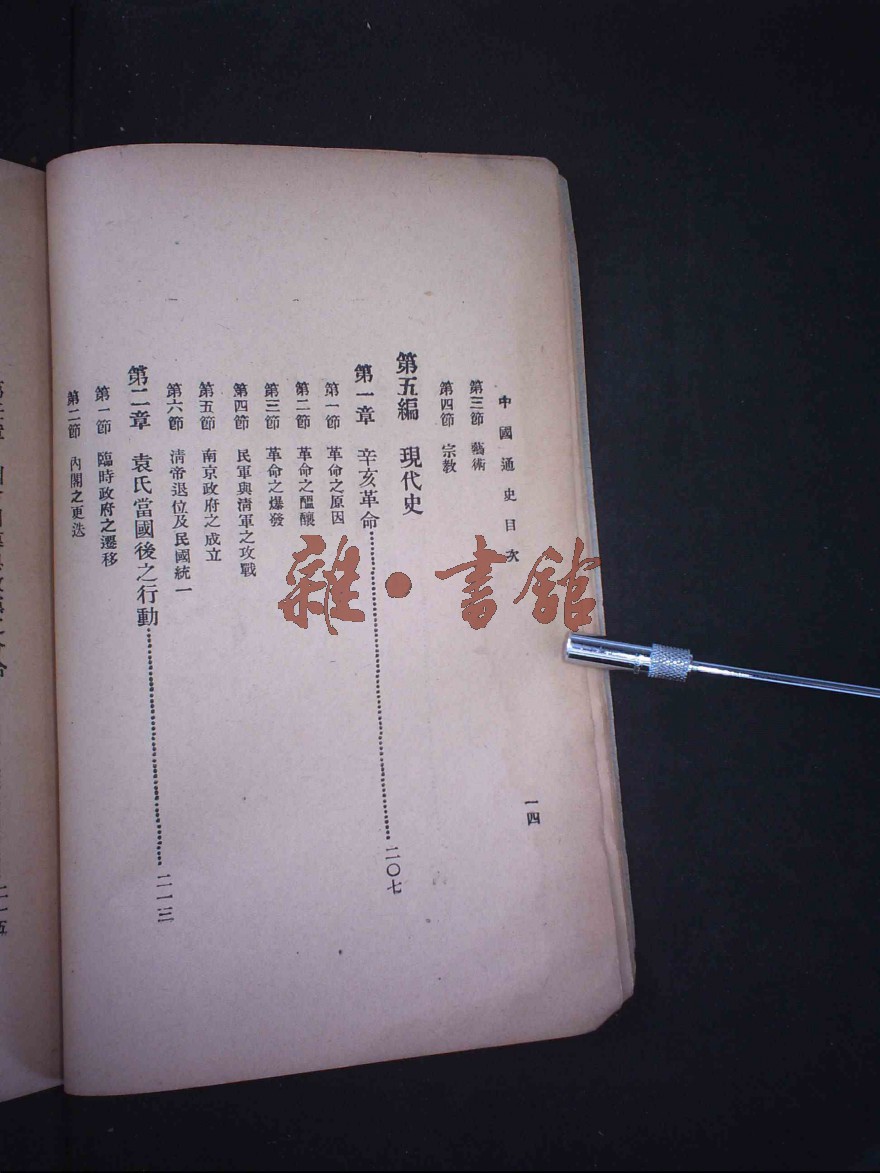 中國通史目次
一四
第三節 藝術
第四節 宗教
第五編 現代史
第一章 辛亥革命……二〇七
第一節 革命之原因
第二節 革命之醞釀
第三節 革命之爆發
第四節 民軍與清軍之攻戰
第五節 南京政府之成立
第六節 清帝退位及民國統一
第二章 袁氏當國後之行動……二一三
第一節 臨時政府之遷移
第二節 內閣之更迭
雜·書館